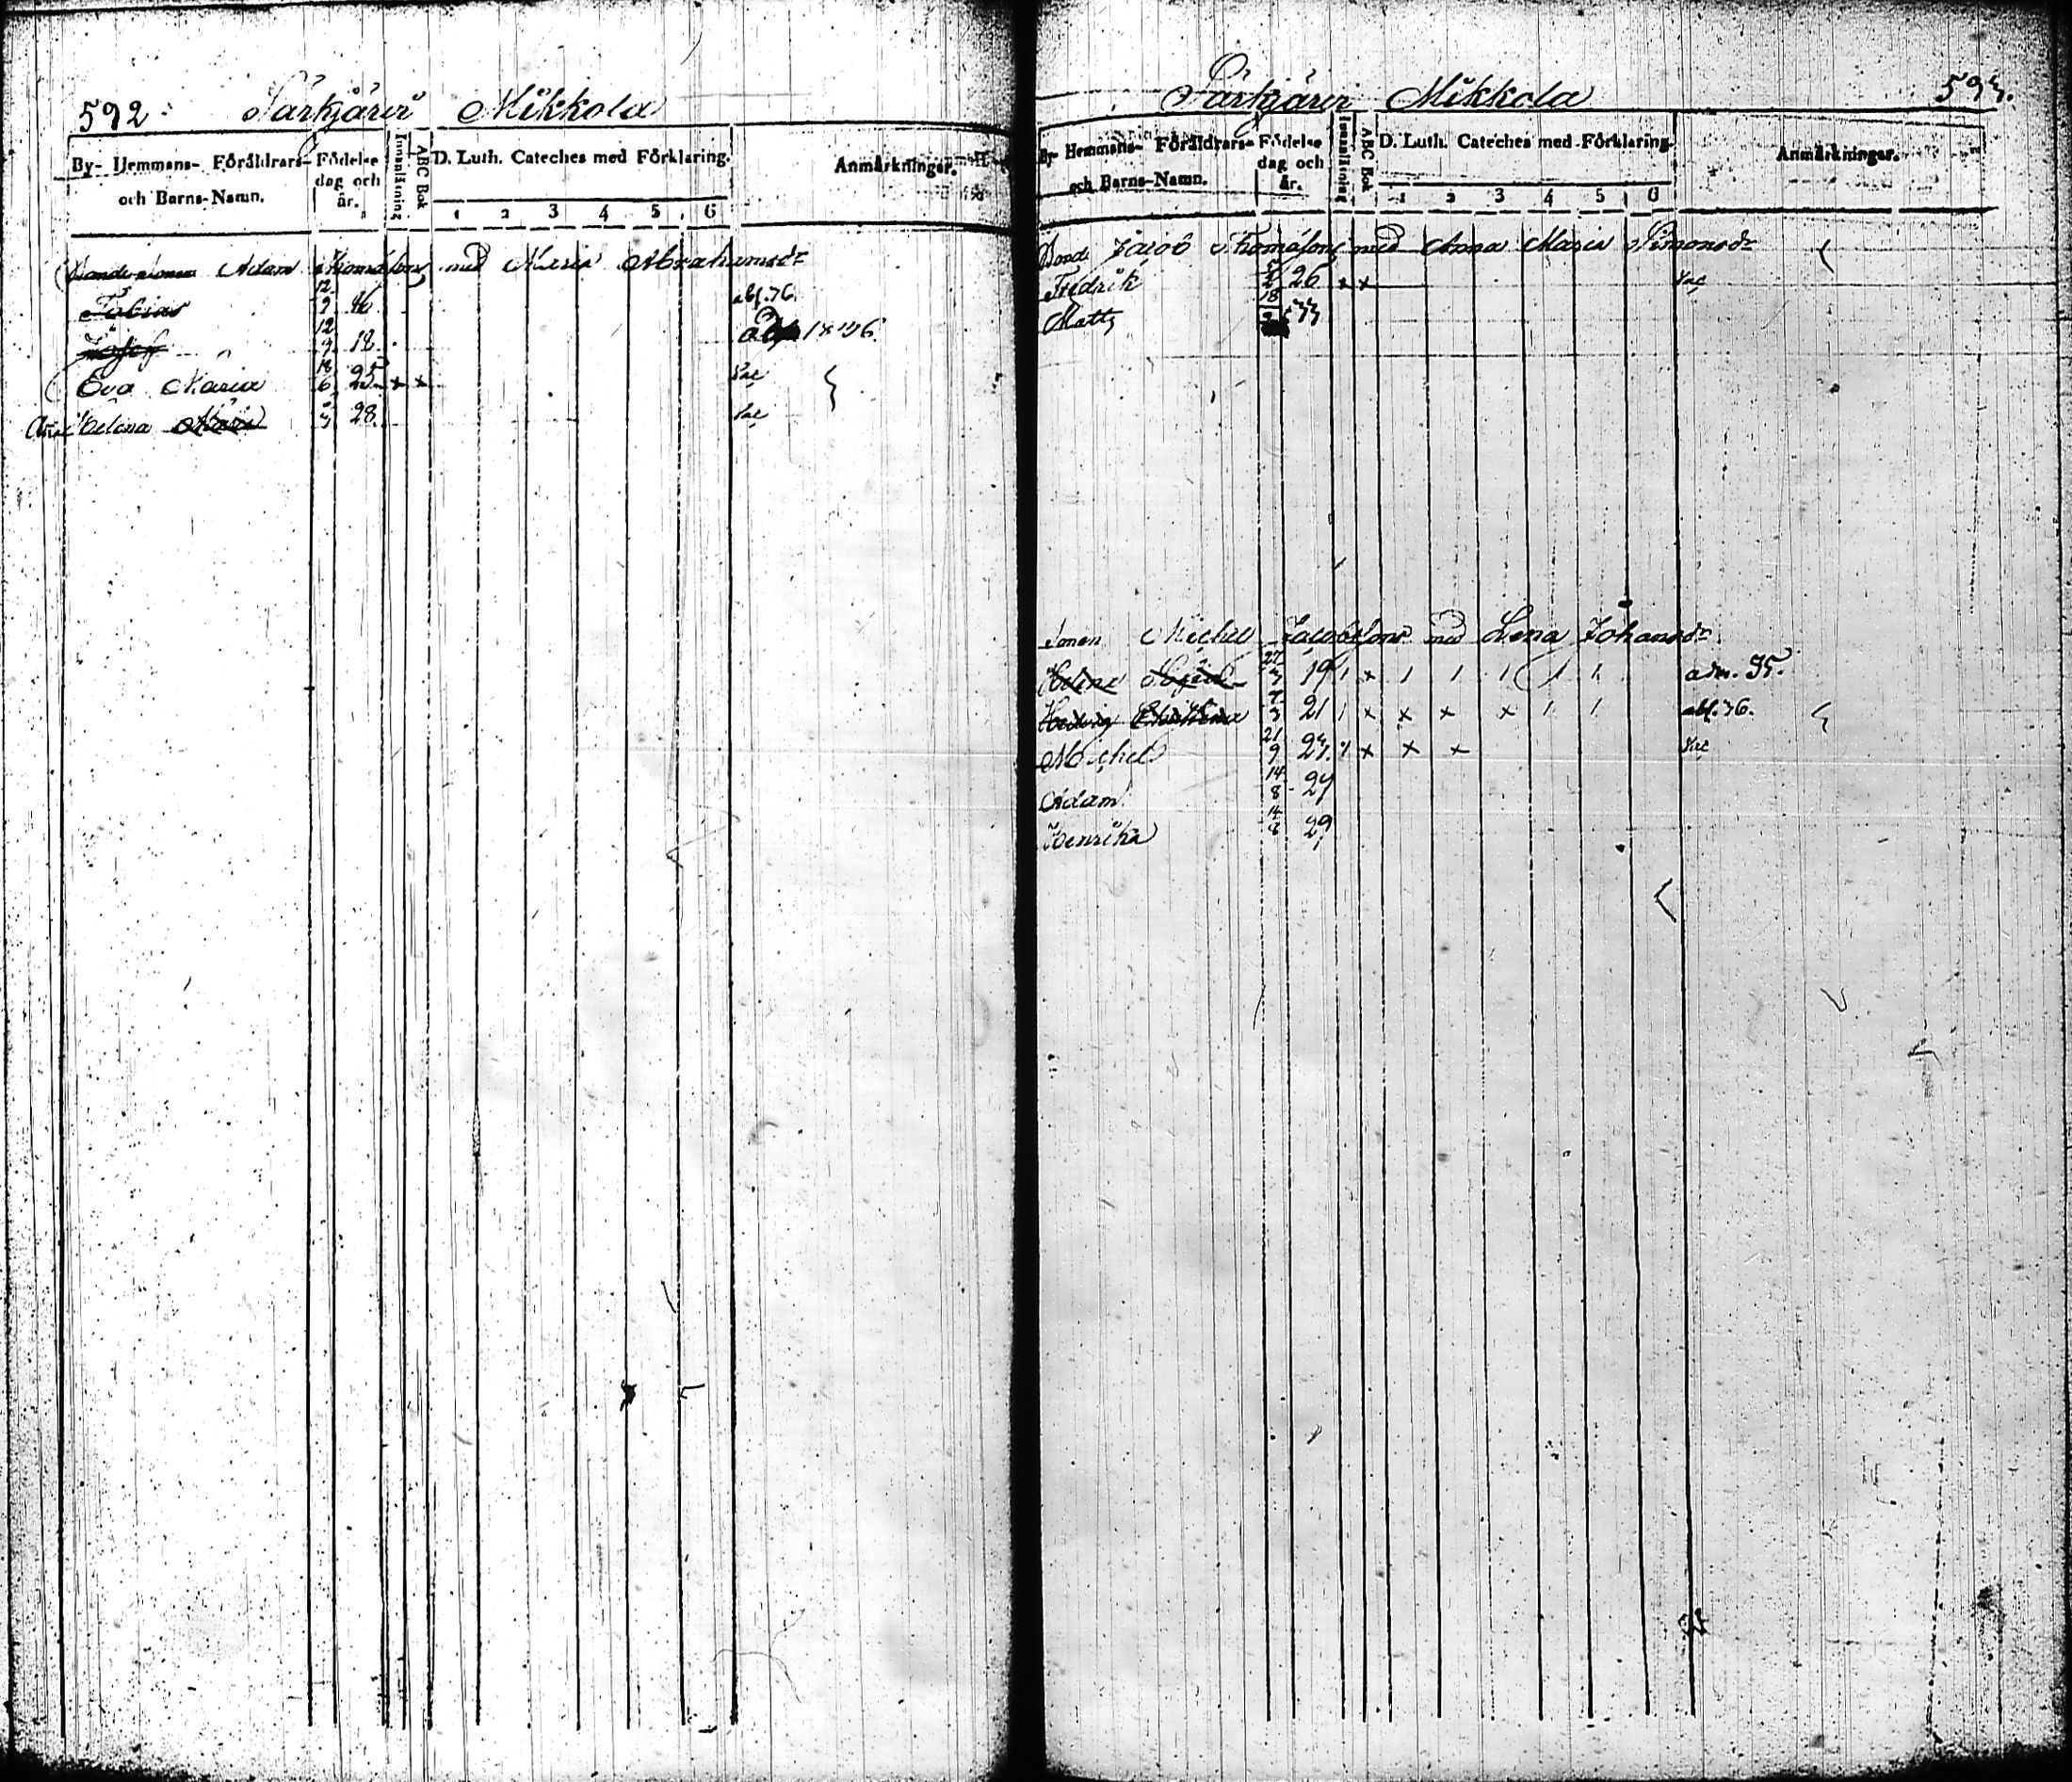 592 Särkjärvi Mikkola
By- Hemmans- Föräldrars- och Barns-Namn. Födelse dag och år. Innanläsning ABC Bok D. Luth. Cateches med Förklaring. Anmärkningar.
1 2 3 4 5 6
Bonde sonen Adam Thomasson med Maria Abrahamsdr
Tobias 12/9 16 abf. 36.
Josef 12/9 18. 1836.
Eva Maria 18/6 25 + + Vac
Helena Maria 28. Vac
Särkjärvi Mikkola 593.
By- Hemmans- Föräldrars- och Barns-Namn. Födelse dag och år. Innanläsning ABC Bok D. Luth. Cateches med Förklaring. Anmärkningar.
1 2 3 4 5 6
Bond. Jacob Thomasson med Anna Maria Simonsdr
Fredrik 26 x x Vac
Matts 18 33
Sonen Michel Jacobsson med Lena Johansdr
Helena 27/3 19 1 x 1 1 1 1 1 adm. 35.
Hedvig 21 1 x x x x 1 1 abf. 36.
Michel 21/9 x x x Vac
Adam 14/8 27
Henrika 14/8 29